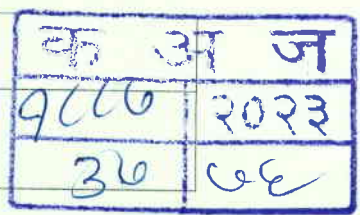 क अ ज
१८८७ २०२३
३७ ७६